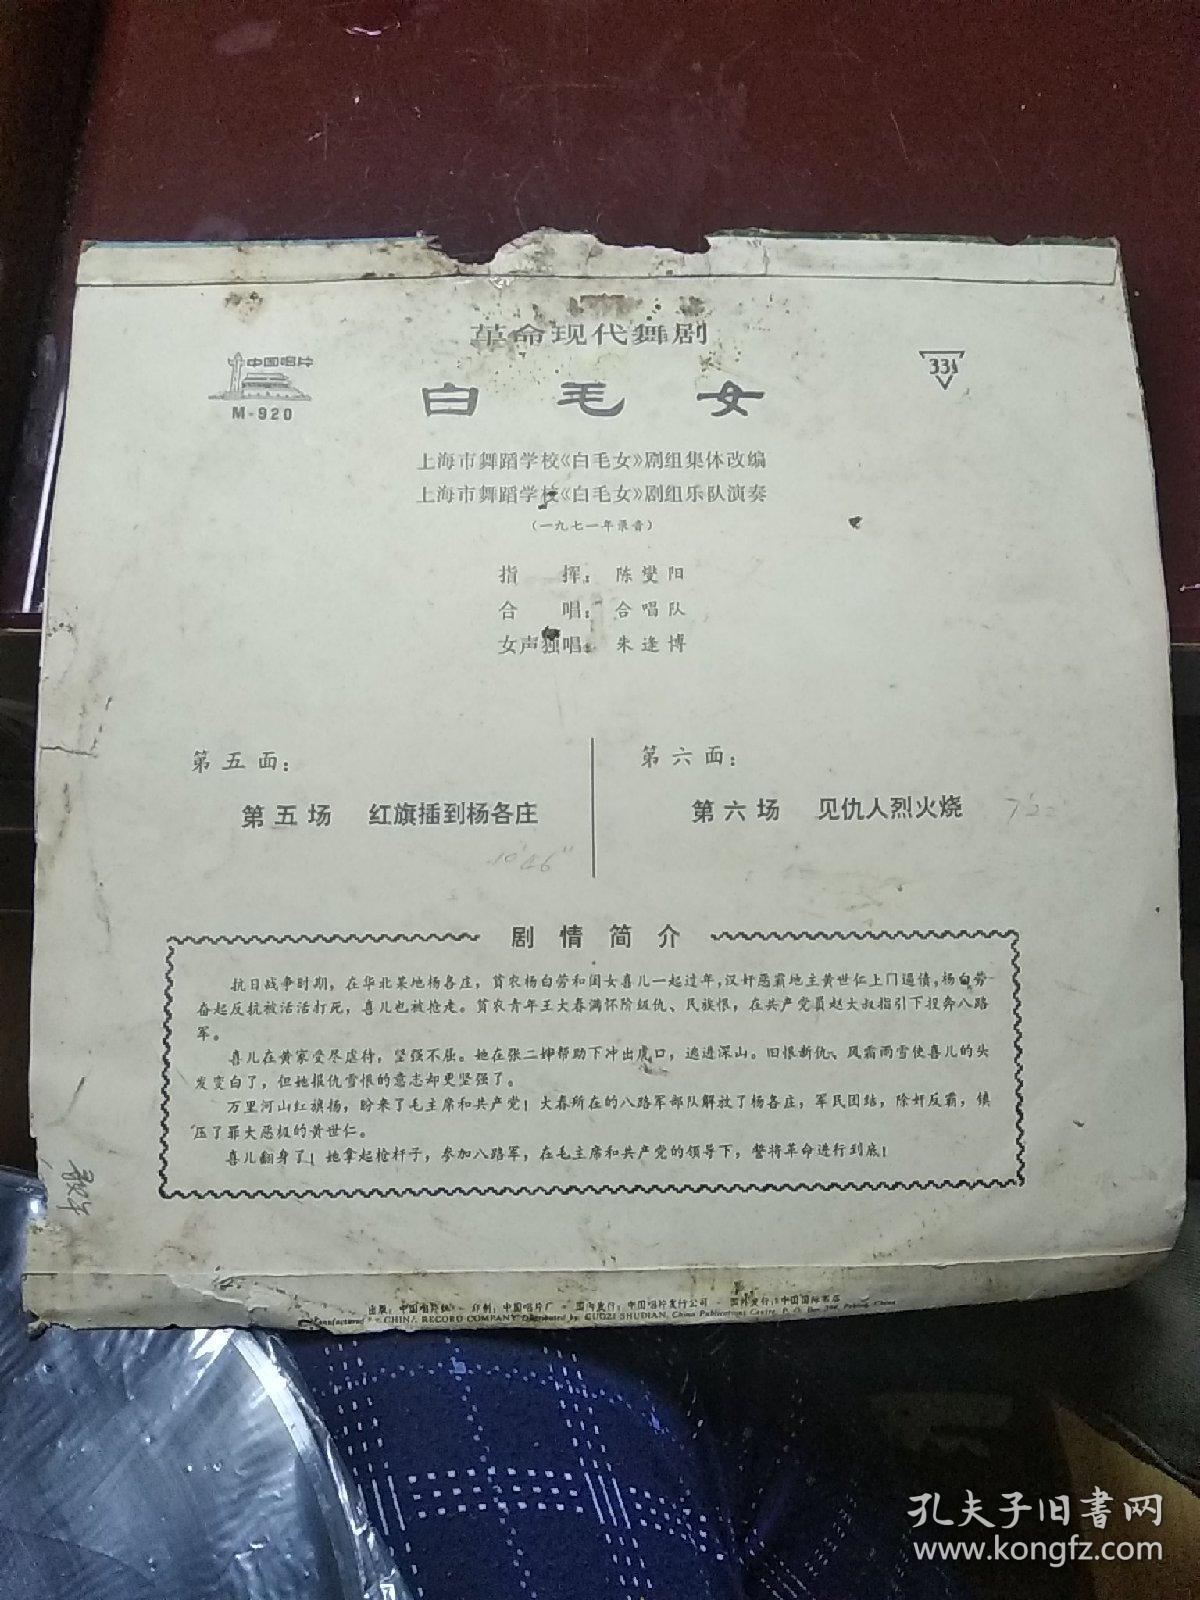 革命现代舞剧
中国唱片
M-920
33⅓
白毛女
上海市舞蹈学校《白毛女》剧组集体改编
上海市舞蹈学校《白毛女》剧组乐队演奏
(一九七一年录音)
指 挥: 陈燮阳
合 唱: 合唱队
女声独唱: 朱逢博
第五面:
第五场 红旗插到杨各庄
第六面:
第六场 见仇人烈火烧
剧情简介
抗日战争时期,在华北某地杨各庄,贫农杨白劳和闺女喜儿一起过年,汉奸恶霸地主黄世仁上门逼债,杨白劳
奋起反抗被活活打死,喜儿也被抢走。贫农青年王大春满怀阶级仇、民族恨,在共产党员赵大叔指引下投奔八路
军。
喜儿在黄家受尽虐待,坚强不屈。她在张二婶帮助下冲出虎口,逃进深山。旧恨新仇、风霜雨雪使喜儿的头
发变白了,但她报仇雪恨的意志却更坚强了。
万里河山红旗扬,盼来了毛主席和共产党!大春所在的八路军部队解放了杨各庄,军民团结,除奸反霸,镇
压了罪大恶极的黄世仁。
喜儿翻身了!她拿起枪杆子,参加八路军,在毛主席和共产党的领导下,誓将革命进行到底!
出版:中国唱片社 · 印制:中国唱片厂 · 国内发行:中国唱片发行公司 · 国外发行:中国国际书店
CHINA RECORD COMPANY Distributed by GUOZI SHUDIAN, China Publications Centre, P. O. Box 399, Peking, China
孔夫子旧書网
www.kongfz.com